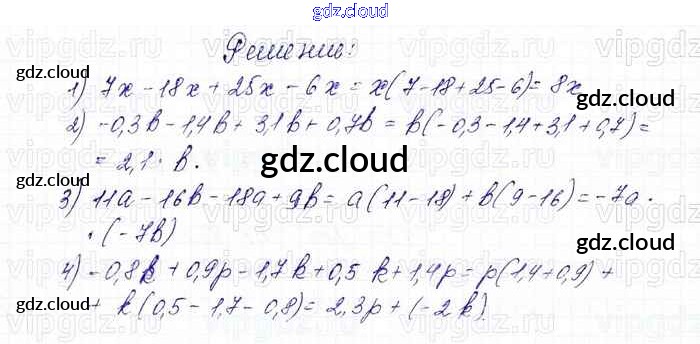 gdz.cloud
Решение:
1) 7x - 18x + 25x - 6x = x(7-18+25-6) = 8x
2) -0,3b - 1,4b + 3,1b + 0,7b = b(-0,3-1,4+3,1+0,7) =
= 2,1 · b.
3) 11a - 16b - 18a + 9b = a(11-18) + b(9-16) = -7a ·
· (-7b)
4) -0,8k + 0,9p - 1,7k + 0,5k + 1,4p = p(1,4+0,9) +
+ k(0,5 - 1,7 - 0,8) = 2,3p + (-2k)
gdz.cloud
gdz.cloud
gdz.cloud
gdz.cloud
gdz.cloud
gdz.cloud
gdz.cloud
gdz.cloud